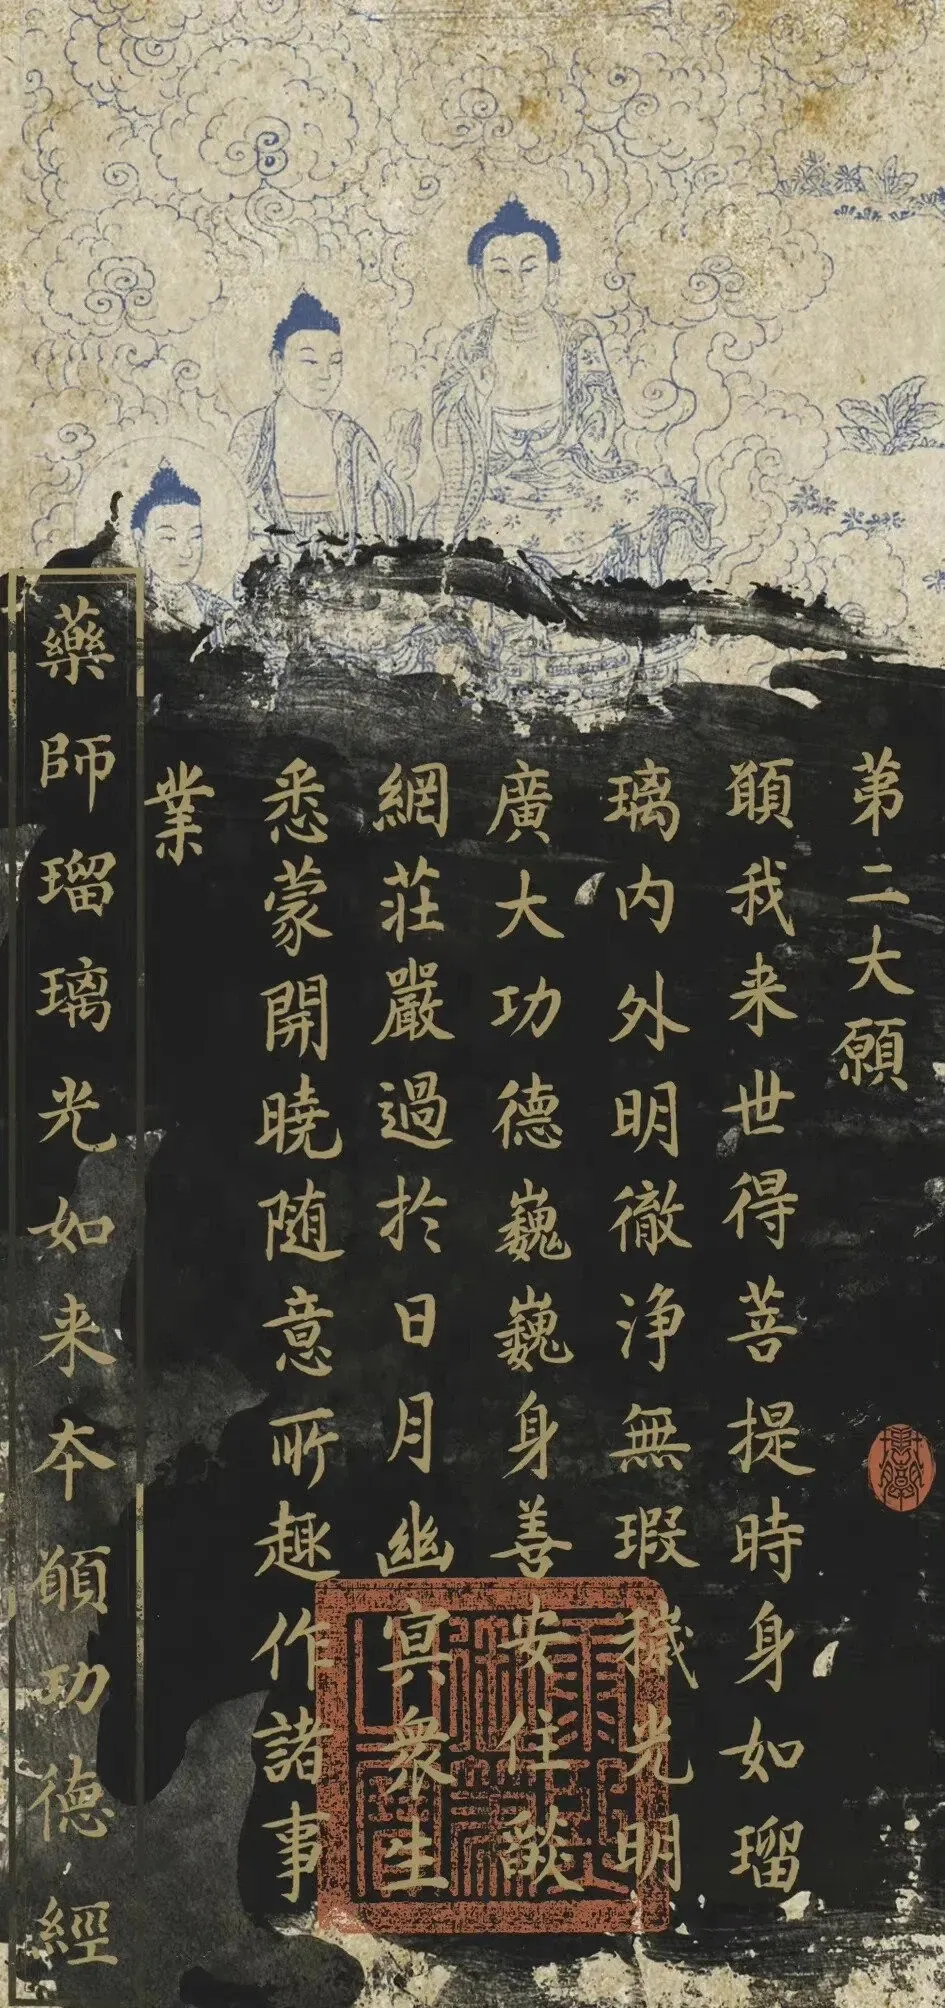 第二大願
願我来世得菩提時身如瑠
璃内外明徹浄無瑕穢光明
廣大功德巍巍身善安住焰
網莊嚴過於日月幽冥衆生
悉蒙開曉随意所趣作諸事
業
藥師瑠璃光如来本願功德經